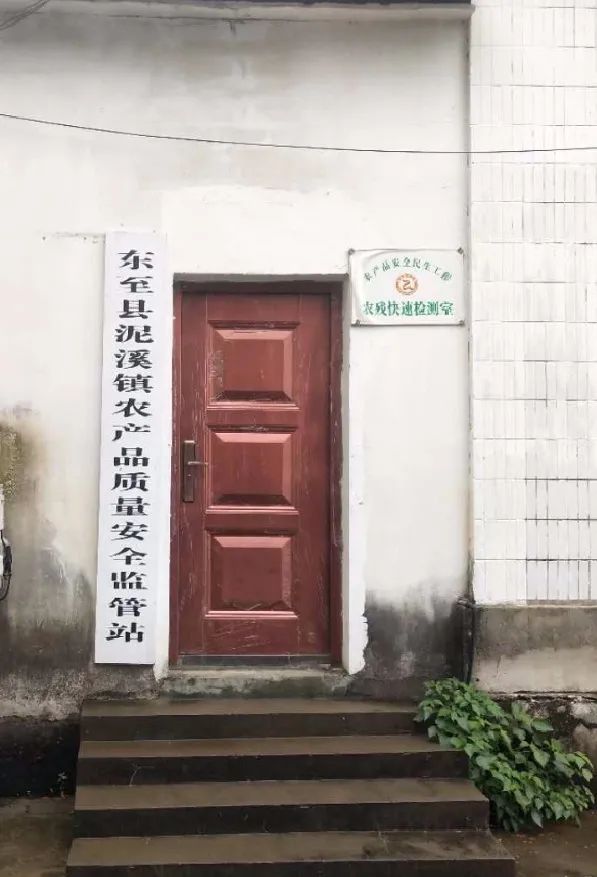 东至县泥溪镇农产品质量安全监管站
农产品安全民生工程
农残快速检测室